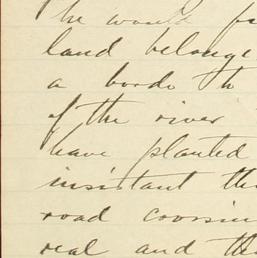 he would
land belonge
a borde th
of the river
have planted
insistant the
road crossin
real and the